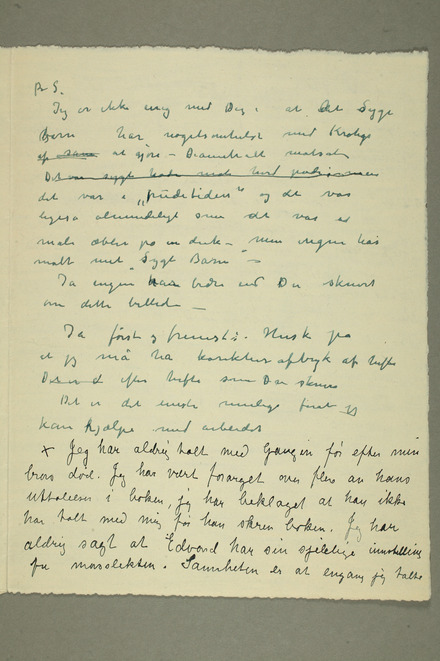 P.S.
Jeg er ikke enig med Dig i at det Syge
Barn har nogetsomhelst med Krohgs
at gjøre – Diametralt modsat
det var i „pudetiden" og det var
ligeså almindeligt som det var at
male æbler på en duk – men ingen har
malt mit "Sygt Barn" –
Ja ingen har bedre end Du skrevet
om dette billede –
Ja først og fremst: Husk på
at jeg må ha korrektur aftryk af hefte
efter hefte som Du skriver
Det er det eneste mulige forat jeg
kan hjælpe med arbeidet
x Jeg har aldrig talt med Gauguin før efter min
brors död. Jeg har vært forarget over flere av hans
uttalelser i boken, jeg har beklaget at han ikke
har talt med mig før han skrev boken. Jeg har
aldrig sagt at Edvard har sin sjelelige innstilling
fra morslekten. Sannheten er at engang jeg talte